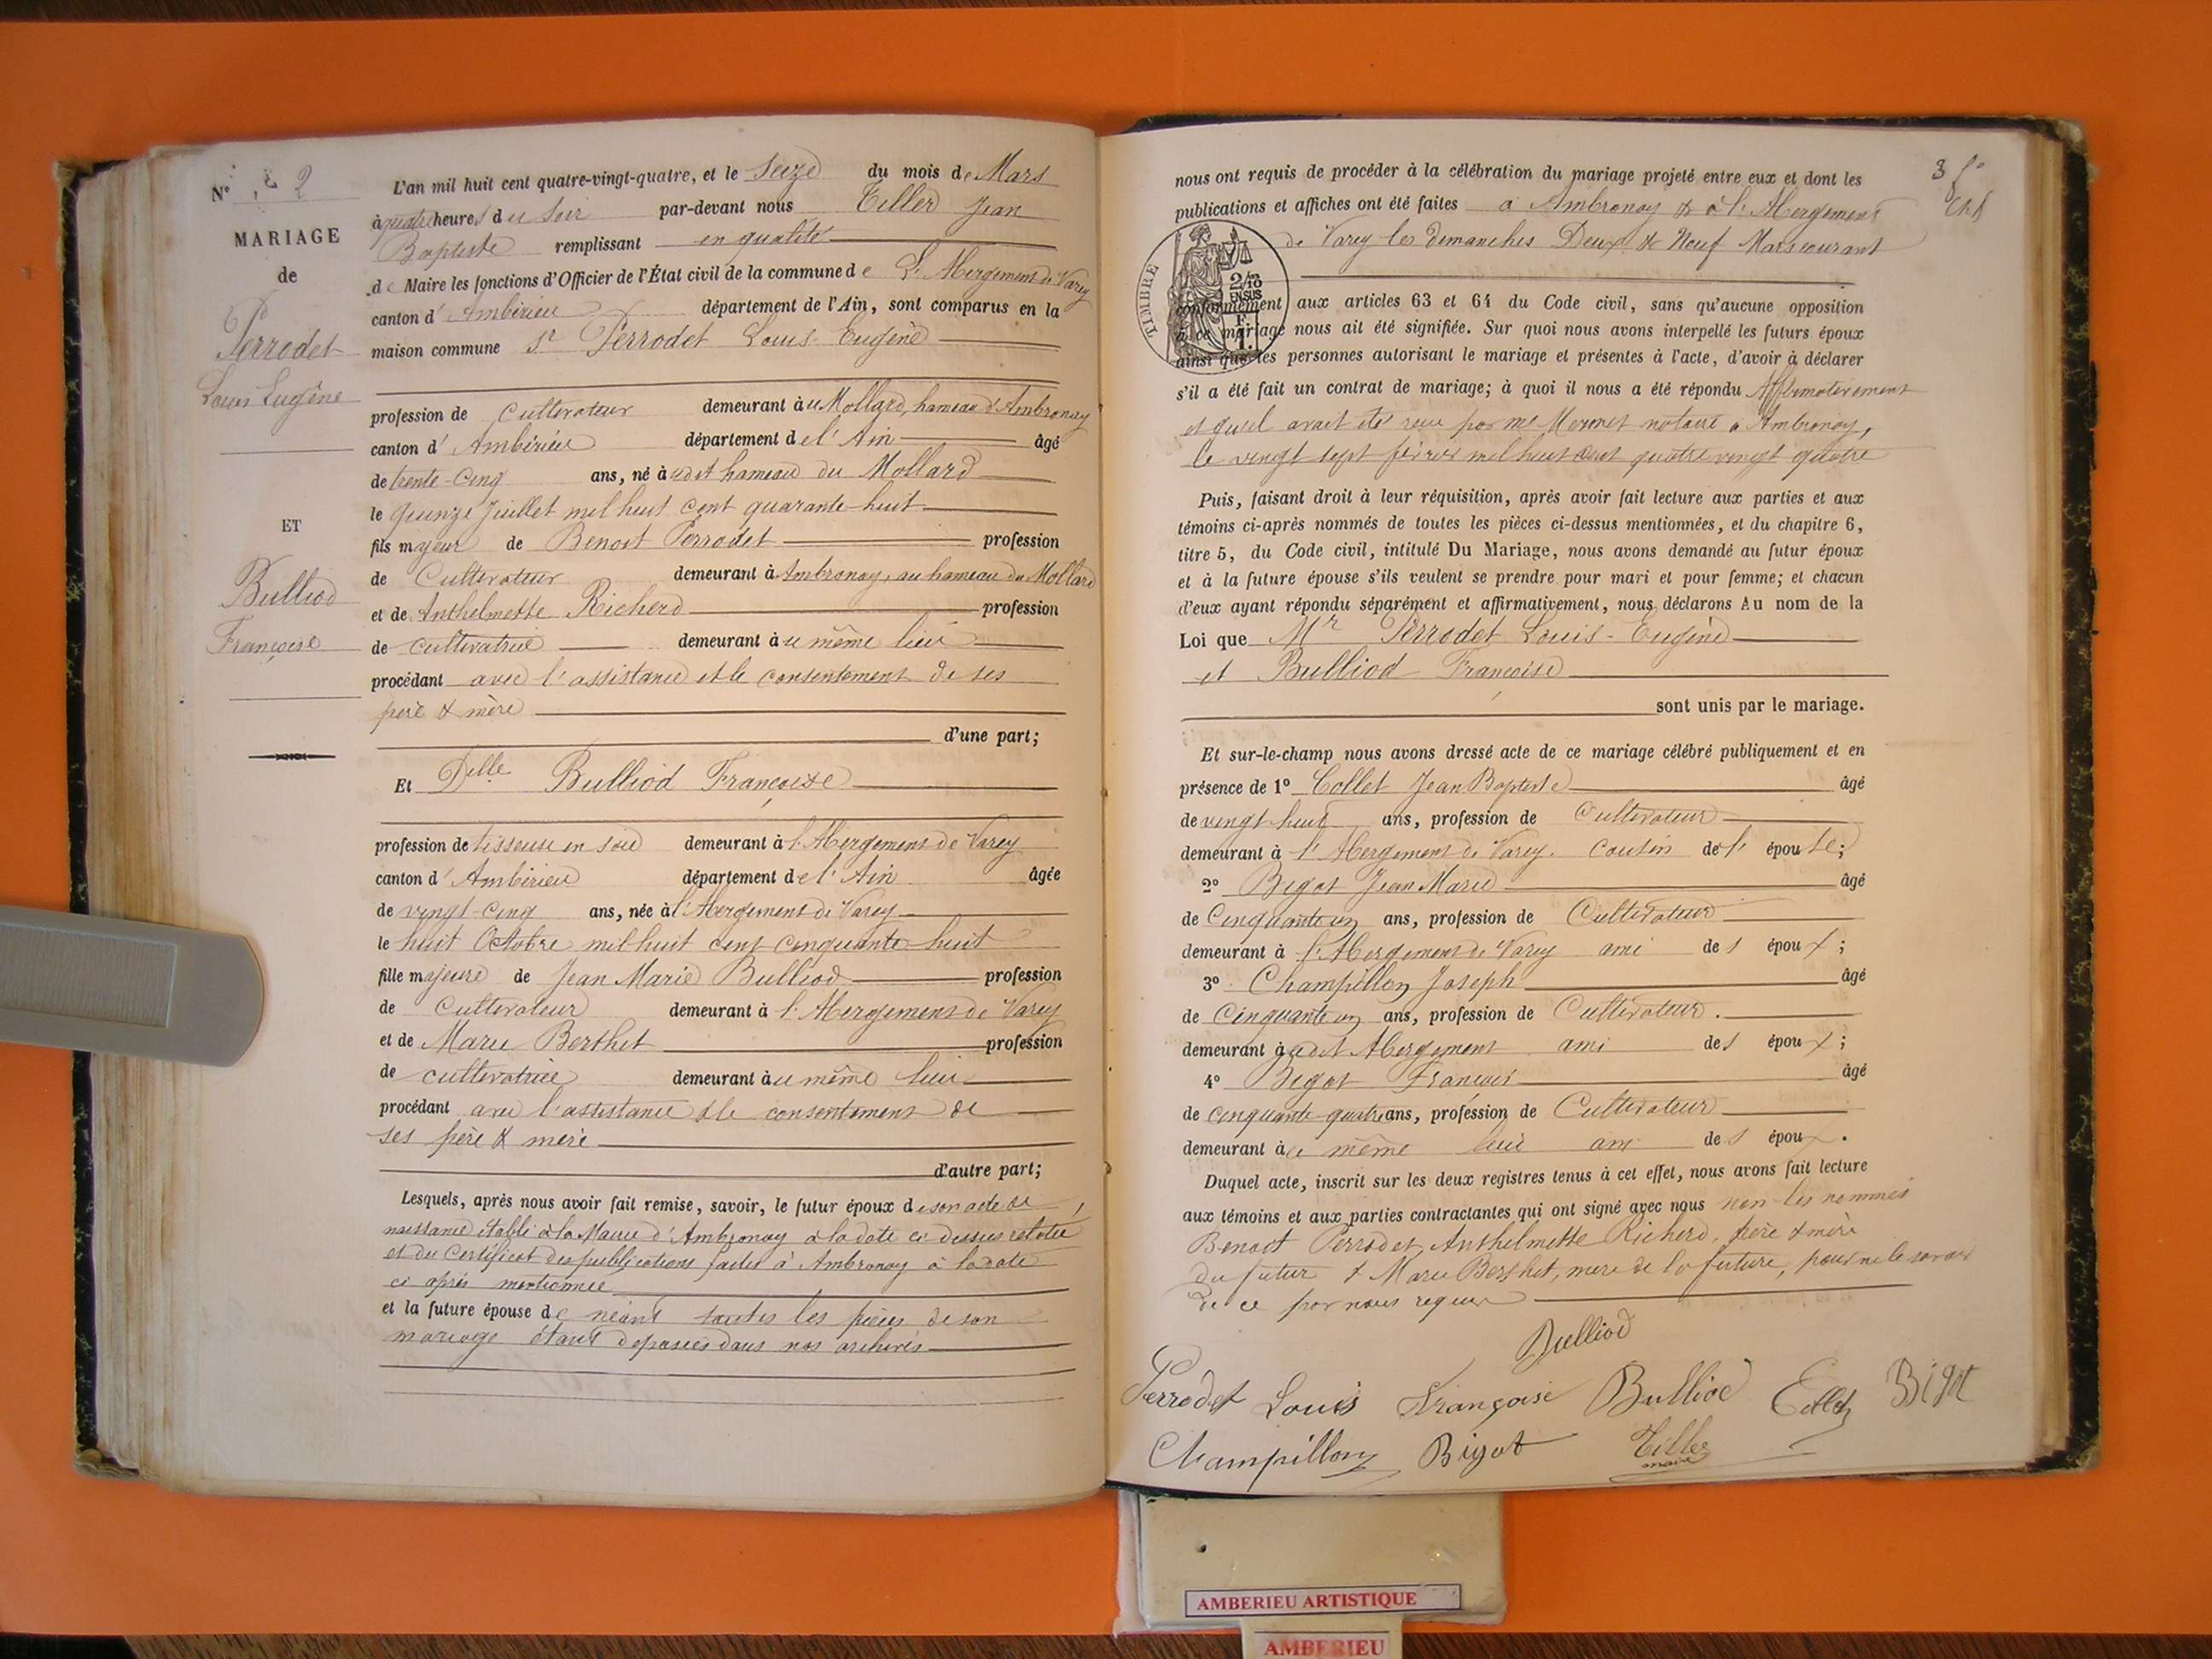 N° 2
MARIAGE
de
Perrodet
Louis Eugène
ET
Bulliod
Françoise
L'an mil huit cent quatre-vingt-quatre, et le Seize du mois de Mars
à quatre heures du Soir par-devant nous Tiller Jean
Baptiste remplissant en qualité
de Maire les fonctions d'Officier de l'État civil de la commune de L'Abergement de Varey
canton d'Ambérieu département de l'Ain, sont comparus en la
maison commune Sr Perrodet Louis-Eugène
profession de Cultivateur demeurant au Mollard, hameau d'Ambronay
canton d'Ambérieu département de l'Ain âgé
de trente-cinq ans, né audit hameau du Mollard
le quinze Juillet mil huit cent quarante-huit
fils majeur de Benoit Perrodet profession
de Cultivateur demeurant à Ambronay, au hameau du Mollard
et de Anthelmette Richerd profession
de cultivatrice demeurant au même lieu
procédant avec l'assistance et le consentement de ses
père & mère
d'une part;
Et Delle Bulliod Françoise
profession de tisseuse en soie demeurant à l'Abergement de Varey
canton d'Ambérieu département de l'Ain âgée
de vingt-cinq ans, née à l'Abergement de Varey
le huit Octobre mil huit cent cinquante-huit
fille majeure de Jean Marie Bulliod profession
de Cultivateur demeurant à l'Abergement de Varey
et de Marie Berthet profession
de cultivatrice demeurant au même lieu
procédant avec l'assistance & le consentement de
ses père & mère
d'autre part;
Lesquels, après nous avoir fait remise, savoir, le futur époux de son acte de
naissance établi à la Mairie d'Ambronay à la date ci-dessus relatée
et du Certificat des publications faites à Ambronay à la date
ci après mentionnée
et la future épouse de néant toutes les pièces de son
mariage étant déposées dans nos archives
3 fo
nous ont requis de procéder à la célébration du mariage projeté entre eux et dont les
publications et affiches ont été faites à Ambronay & à l'Abergement
de Varey les dimanches Deux & Neuf Mars courant
TIMBRE
2/10
EN SUS
F.
1.
conformément aux articles 63 et 64 du Code civil, sans qu'aucune opposition
à ce mariage nous ait été signifiée. Sur quoi nous avons interpellé les futurs époux
ainsi que les personnes autorisant le mariage et présentes à l'acte, d'avoir à déclarer
s'il a été fait un contrat de mariage; à quoi il nous a été répondu Affirmativement
et qu'il avait été reçu par Me Mermet notaire à Ambronay,
le vingt sept février mil huit cent quatre vingt quatre
Puis, faisant droit à leur réquisition, après avoir fait lecture aux parties et aux
témoins ci-après nommés de toutes les pièces ci-dessus mentionnées, et du chapitre 6,
titre 5, du Code civil, intitulé Du Mariage, nous avons demandé au futur époux
et à la future épouse s'ils veulent se prendre pour mari et pour femme; et chacun
d'eux ayant répondu séparément et affirmativement, nous déclarons Au nom de la
Loi que Mr Perrodet Louis-Eugène
et Bulliod Françoise
sont unis par le mariage.
Et sur-le-champ nous avons dressé acte de ce mariage célébré publiquement et en
présence de 1° Collet Jean Baptiste âgé
de vingt huit ans, profession de Cultivateur
demeurant à l'Abergement de Varey cousin de l'épouse;
2° Bigot Jean Marie âgé
de Cinquante un ans, profession de Cultivateur
demeurant à l'Abergement de Varey ami des époux;
3° Champillon Joseph âgé
de Cinquante un ans, profession de Cultivateur.
demeurant audit Abergement ami des époux;
4° Bigot François âgé
de cinquante-quatre ans, profession de Cultivateur
demeurant au même lieu ami des époux.
Duquel acte, inscrit sur les deux registres tenus à cet effet, nous avons fait lecture
aux témoins et aux parties contractantes qui ont signé avec nous non les nommés
Benoit Perrodet, Anthelmette Richerd, père & mère
du futur & Marie Berthet, mère de la future, pour ne le savoir
de ce par nous requis
Bulliod
Perrodet Louis Françoise Bulliod Collet Bigot
Champillon Bigot Tiller
maire
AMBERIEU ARTISTIQUE
AMBERIEU